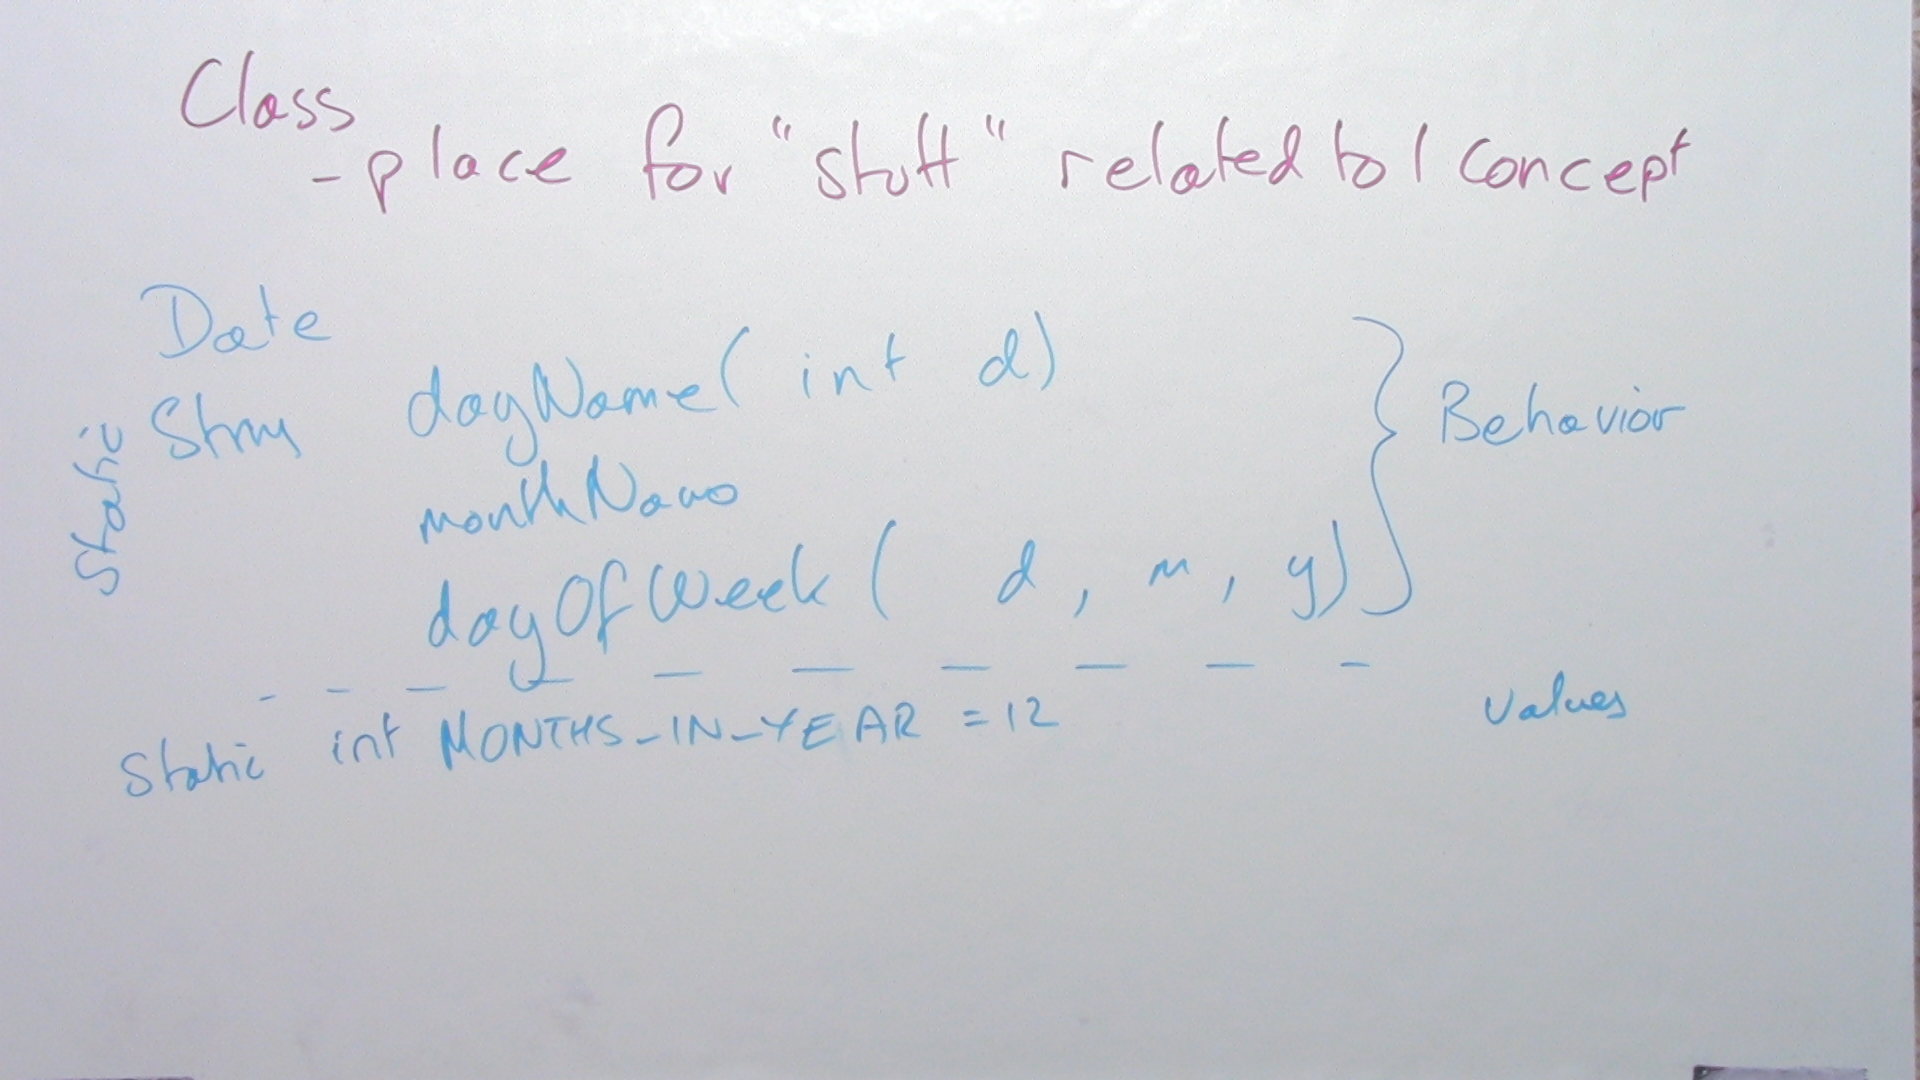 Class
- place for "stuff" related to 1 concept
Date
static
String dayName( int d)
monthName
dayOfWeek( d, m, y)
Behavior
static int MONTHS_IN_YEAR = 12
values